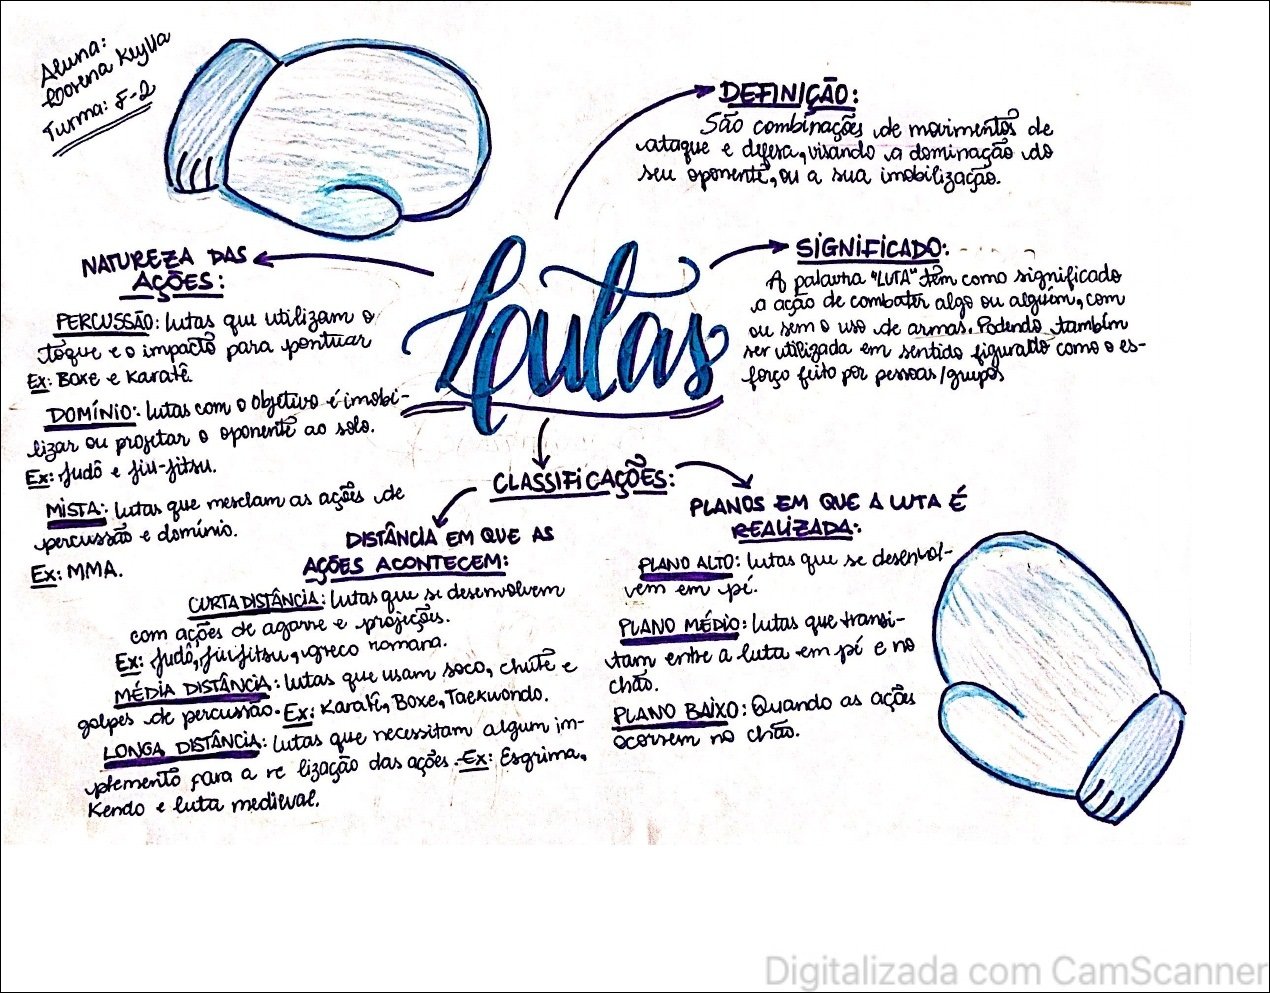 Aluna:
Lorena Keylla
Turma: F-2
DEFINIÇÃO:
São combinações de movimentos de
ataque e defesa, visando a dominação do
seu oponente, ou a sua imobilização.
Lutas
SIGNIFICADO:
A palavra "LUTA" têm como significado
a ação de combater algo ou alguem, com
ou sem o uso de armas. Podendo também
ser utilizada em sentido figurado como o es-
forço feito por pessoas/grupos
NATUREZA DAS
AÇÕES:
PERCUSSÃO: lutas que utilizam o
toque e o impacto para pontuar
Ex: Boxe e Karatê.
DOMÍNIO: lutas com o objetivo é imobi-
lizar ou projetar o oponente ao solo.
Ex: Judô e jiu-jitsu.
MISTA: lutas que mesclam as ações de
percussão e domínio.
Ex: MMA.
CLASSIFICAÇÕES:
DISTÂNCIA EM QUE AS
AÇÕES ACONTECEM:
CURTA DISTÂNCIA: lutas que se desenvolvem
com ações de agarre e projeções.
Ex: Judô, jiu-jitsu, greco romana.
MÉDIA DISTÂNCIA: lutas que usam soco, chute e
golpes de percussão. Ex: Karatê, Boxe, Taekwondo.
LONGA DISTÂNCIA: lutas que necessitam algum im-
plemento para a re lização das ações. Ex: Esgrima,
Kendo e luta medieval.
PLANOS EM QUE A LUTA É
REALIZADA:
PLANO ALTO: lutas que se desenvol-
vem em pé.
PLANO MÉDIO: lutas que transi-
tam entre a luta em pé e no
chão.
PLANO BAIXO: Quando as ações
ocorrem no chão.
Digitalizada com CamScanner